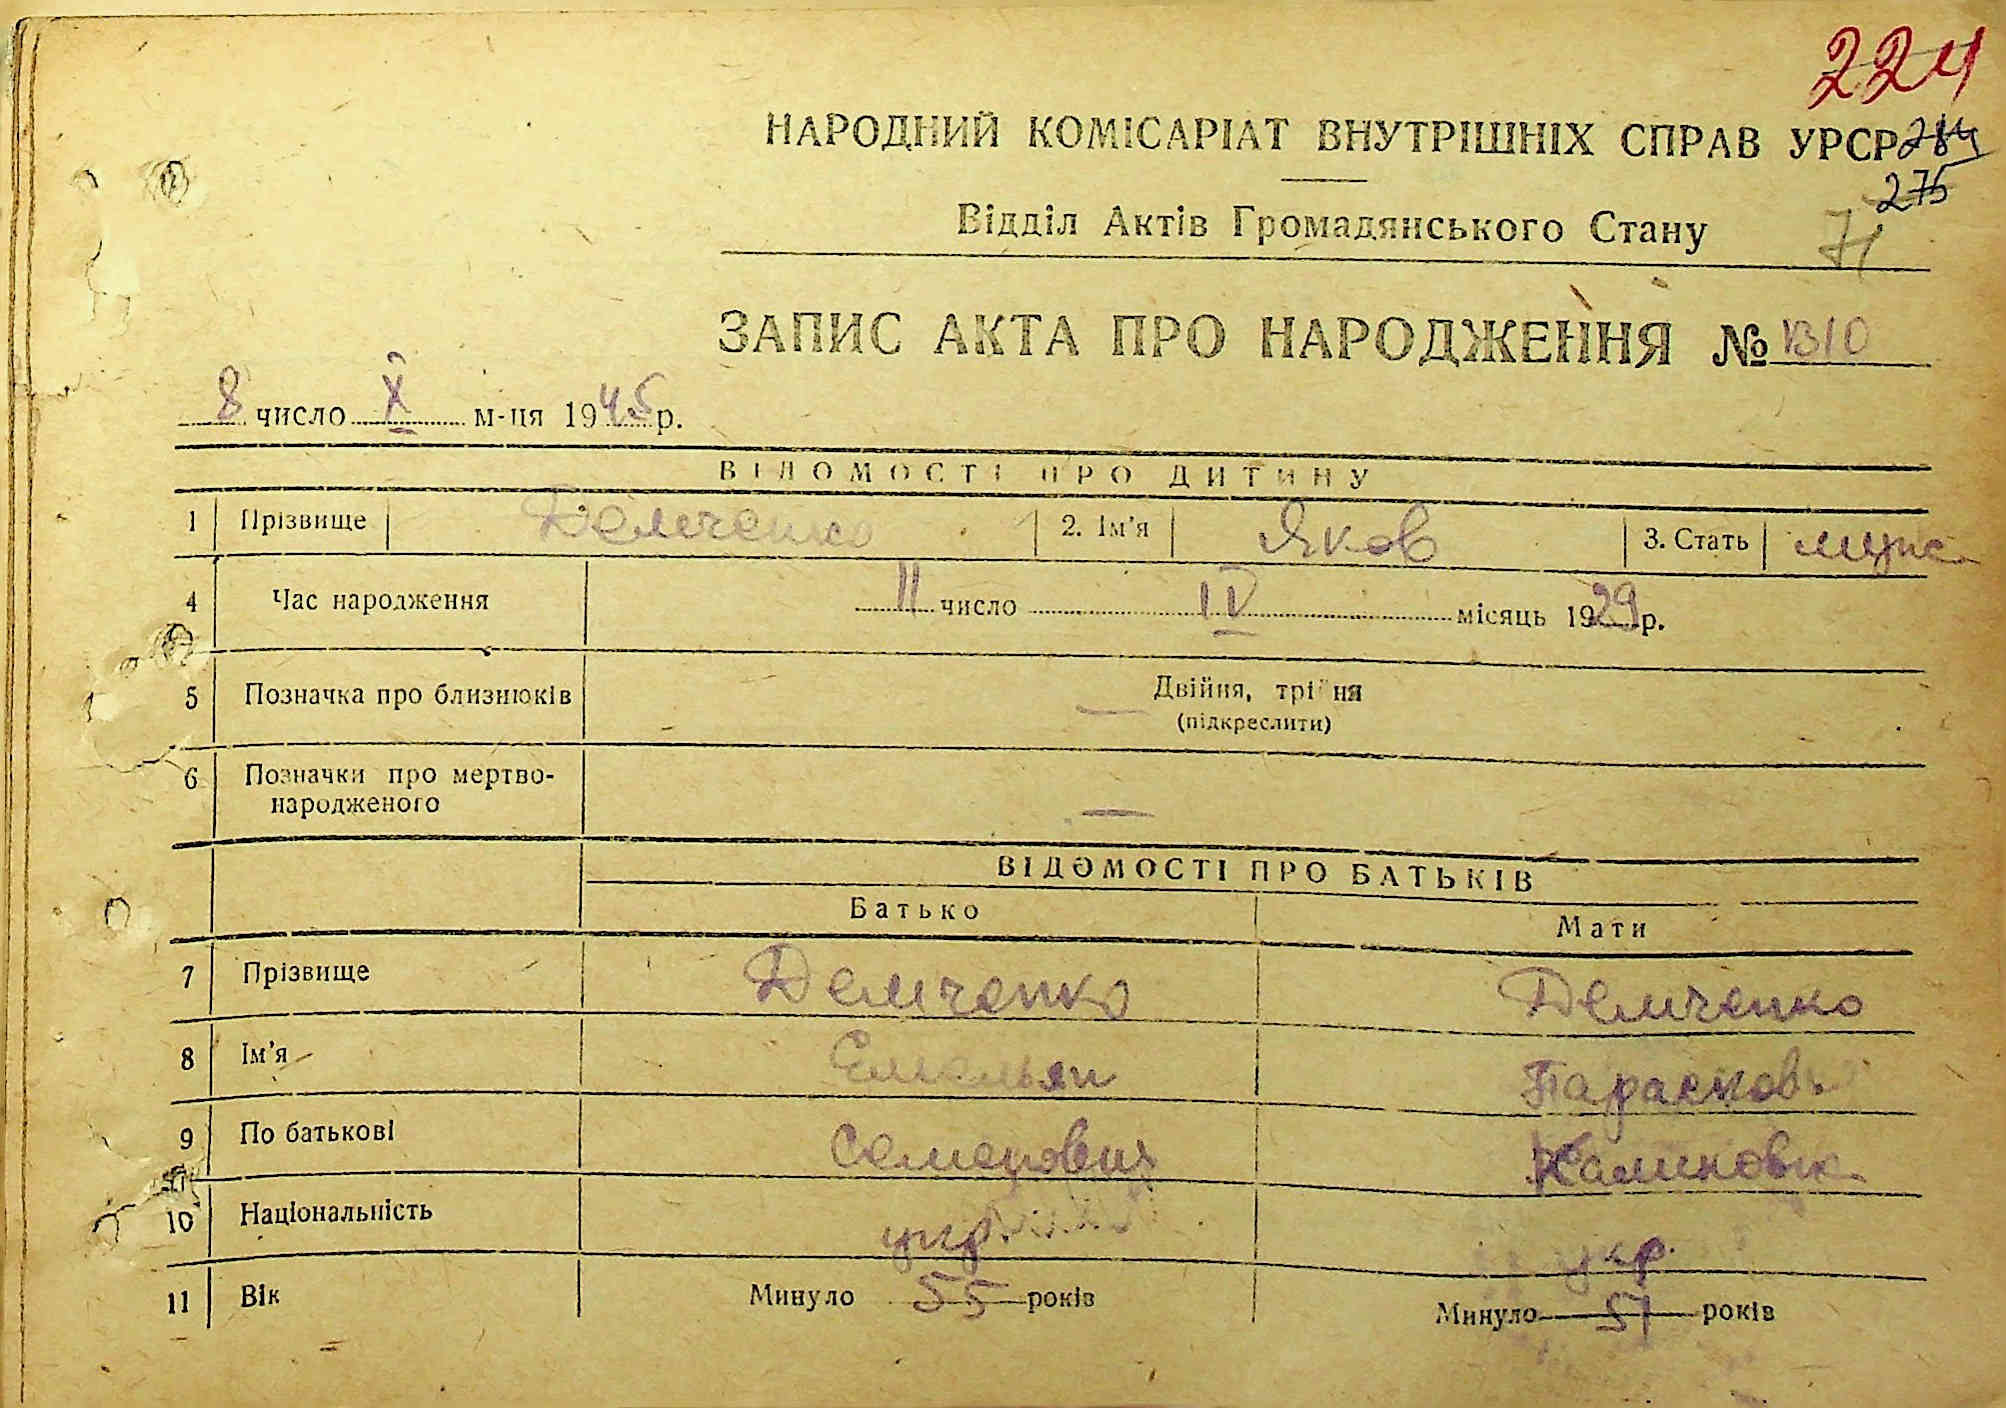 224
НАРОДНИЙ КОМІСАРІАТ ВНУТРІШНІХ СПРАВ УРСР 284
275
Відділ Актів Громадянського Стану 71
ЗАПИС АКТА ПРО НАРОДЖЕННЯ № 1310
8 число X м-ця 1945 р.
ВІДОМОСТІ ПРО ДИТИНУ
1 Прізвище Демченко 2. Ім'я Яков 3. Стать муж
4 Час народження 11 число IV місяць 1929 р.
5 Позначка про близнюків — Двійня, трійня
(підкреслити)
6 Позначки про мертво-
народженого —
ВІДОМОСТІ ПРО БАТЬКІВ
Батько Мати
7 Прізвище Демченко Демченко
8 Ім'я Емельян Парасковья
9 По батькові Семенович Калиновна
10 Національність укр. укр.
11 Вік Минуло 55 років Минуло 51 років